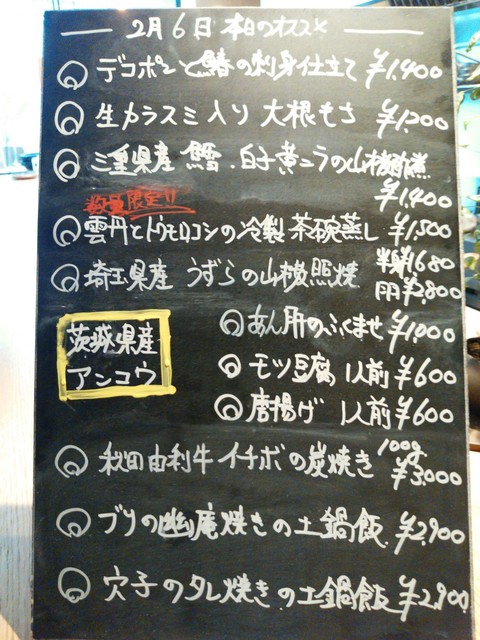 2月6日 本日のオススメ
デコポンと鰆の刺身仕立て ¥1,400
生カラスミ入り 大根もち ¥1,200
三重県産 鱈 白子 黄ニラの山椒
¥1,400
数量限定!!
雲丹とトウモロコシの冷製 茶碗蒸し ¥1,500
埼玉県産 うずらの山椒照焼 半身¥1,680
¥2,800
茨城県産
アンコウ
あん肝のふくませ ¥1,000
モツ豆腐 1人前 ¥600
唐揚げ 1人前 ¥600
秋田由利牛イチボの炭焼き 100g ¥3,000
ブリの幽庵焼きの土鍋飯 ¥2,900
穴子のタレ焼きの土鍋飯 ¥2,900